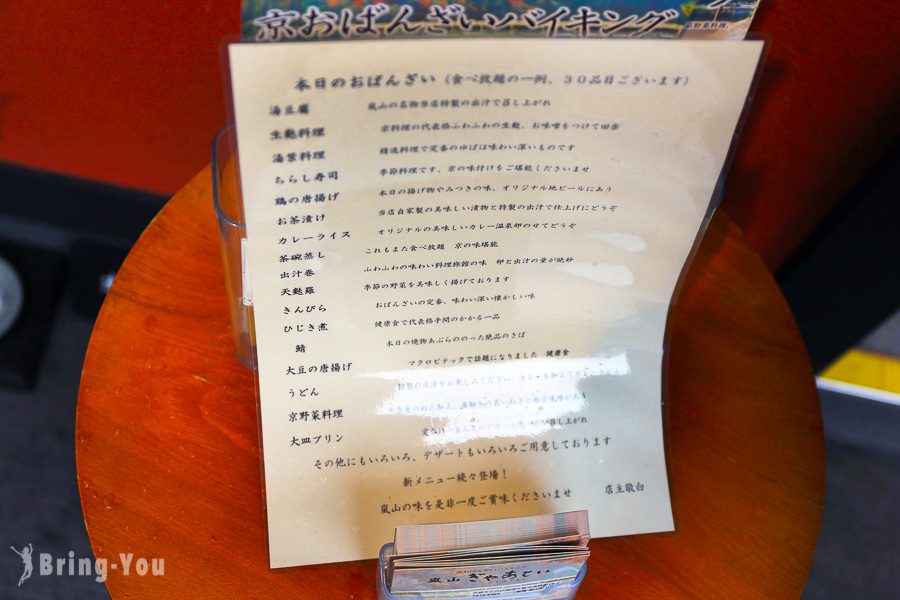 京おばんざいバイキング
本日のおばんざい（食べ放題の一例、３０品目ございます）
湯豆腐 嵐山の名物当店特製の出汁で召し上がれ
生麩料理 京料理の代表格ふわふわの生麩、お味噌をつけて田楽
湯葉料理 精進料理で定番のゆばは味わい深いものです
ちらし寿司 季節料理です、京の味付けをご堪能くださいませ
鶏の唐揚げ 本日の揚げ物やみつきの味、オリジナル地ビールにあう
お茶漬け 当店自家製の美味しい漬物と特製の出汁で仕上げにどうぞ
カレーライス オリジナルの美味しいカレー温泉卵のせてどうぞ
茶碗蒸し これもまた食べ放題 京の味堪能
出汁巻 ふわふわの味わい料理旅館の味 卵と出汁の量が絶妙
天麩羅 季節の野菜を美味しく揚げております
きんぴら おばんざいの定番、味わい深い懐かしい味
ひじき煮 健康食で代表格手間のかかる一品
鯖 本日の焼物あぶらののった絶品のさば
大豆の唐揚げ マクロビテックで話題になりました 健康食
うどん 特製の出汁をお楽しみください、カレーを加えて
京野菜料理
大皿プリン 召し上がれ
その他にもいろいろ、デザートもいろいろご用意しております
新メニュー続々登場！
嵐山の味を是非一度ご賞味くださいませ 店主敬白
嵐山 ぎゃあてい
Bring-You